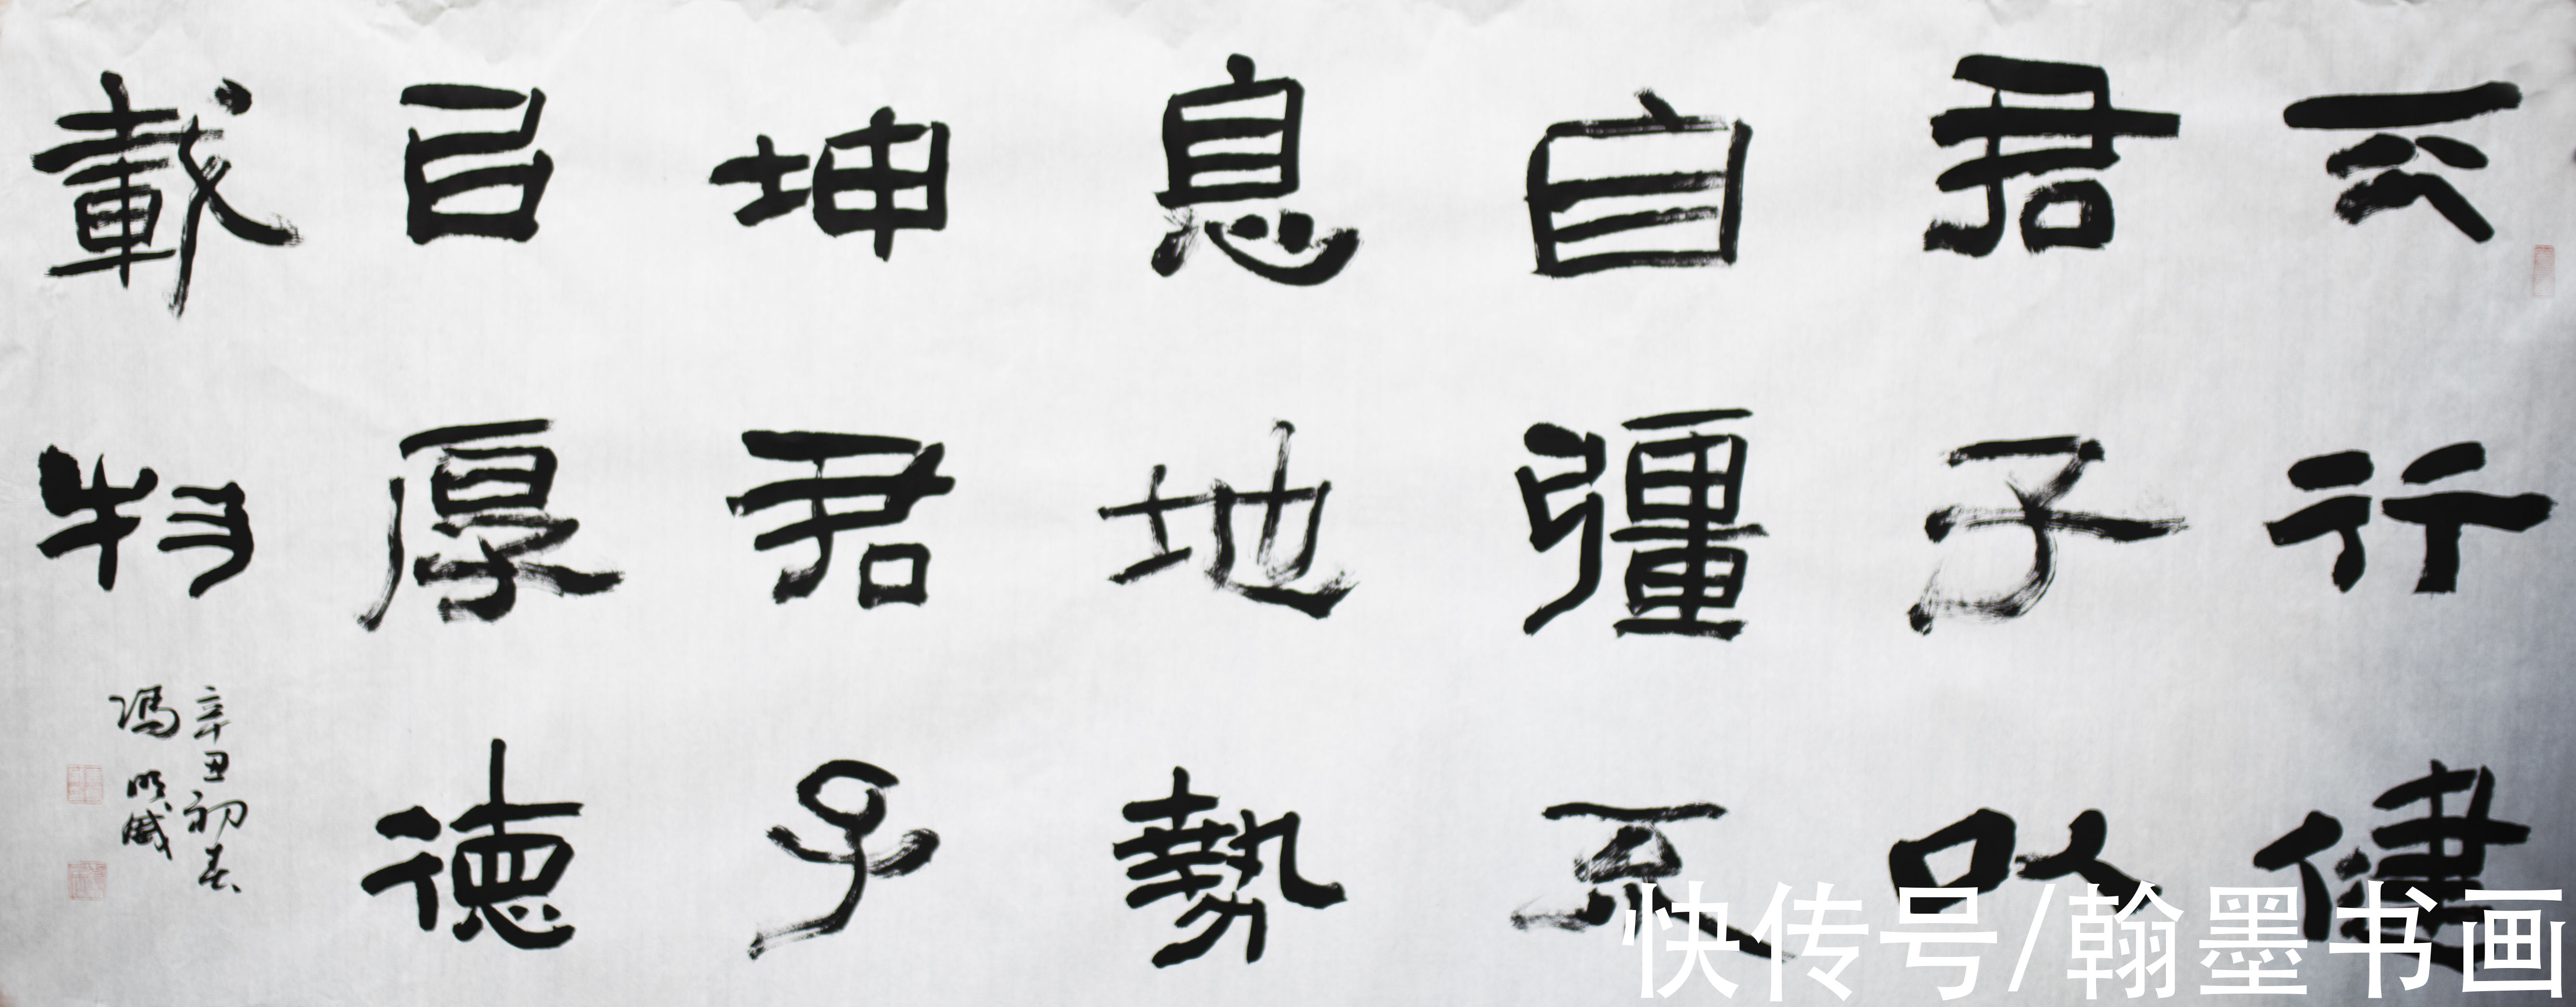 天行健
君子以
自彊不
息地勢
坤君子
㠯厚徳
載物
辛丑初春
冯
快传号/翰墨书画